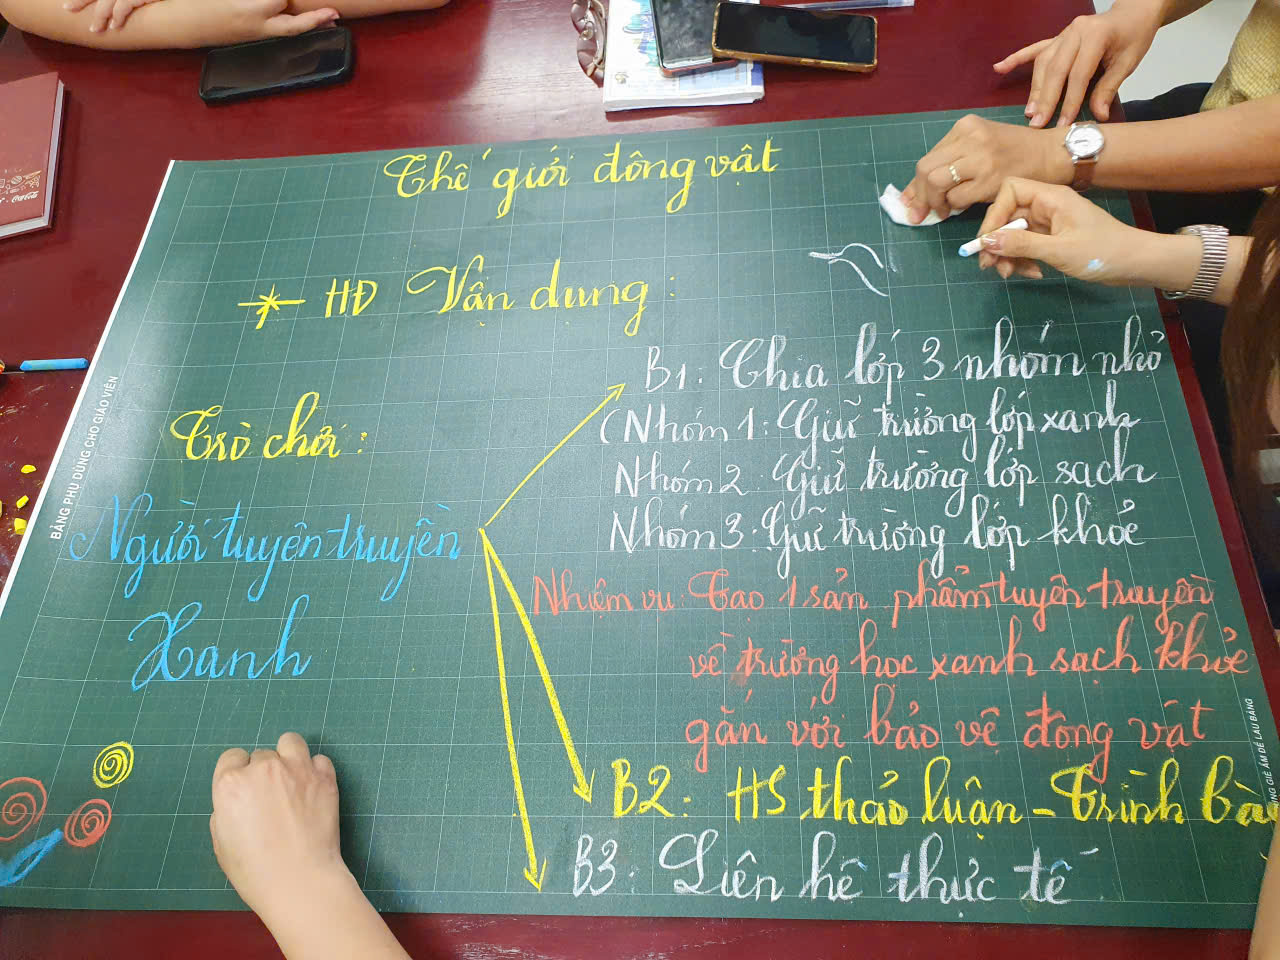 Thế giới động vật
HĐ Vận dụng:
Trò chơi:
Người tuyên truyền
Xanh
B1: Chia lớp 3 nhóm nhỏ
(Nhóm 1: Giữ trường lớp xanh
Nhóm 2: Giữ trường lớp sạch
Nhóm 3: Giữ trường lớp khoẻ
Nhiệm vụ: Tạo 1 sản phẩm tuyên truyền
về trường học xanh sạch khoẻ
gắn với bảo vệ động vật
B2: HS thảo luận - Trình bà
B3: Liên hệ thực tế
BẢNG PHỤ DÙNG CHO GIÁO VIÊN
GIẺ ẨM ĐỂ LAU BẢNG
Coca-Cola